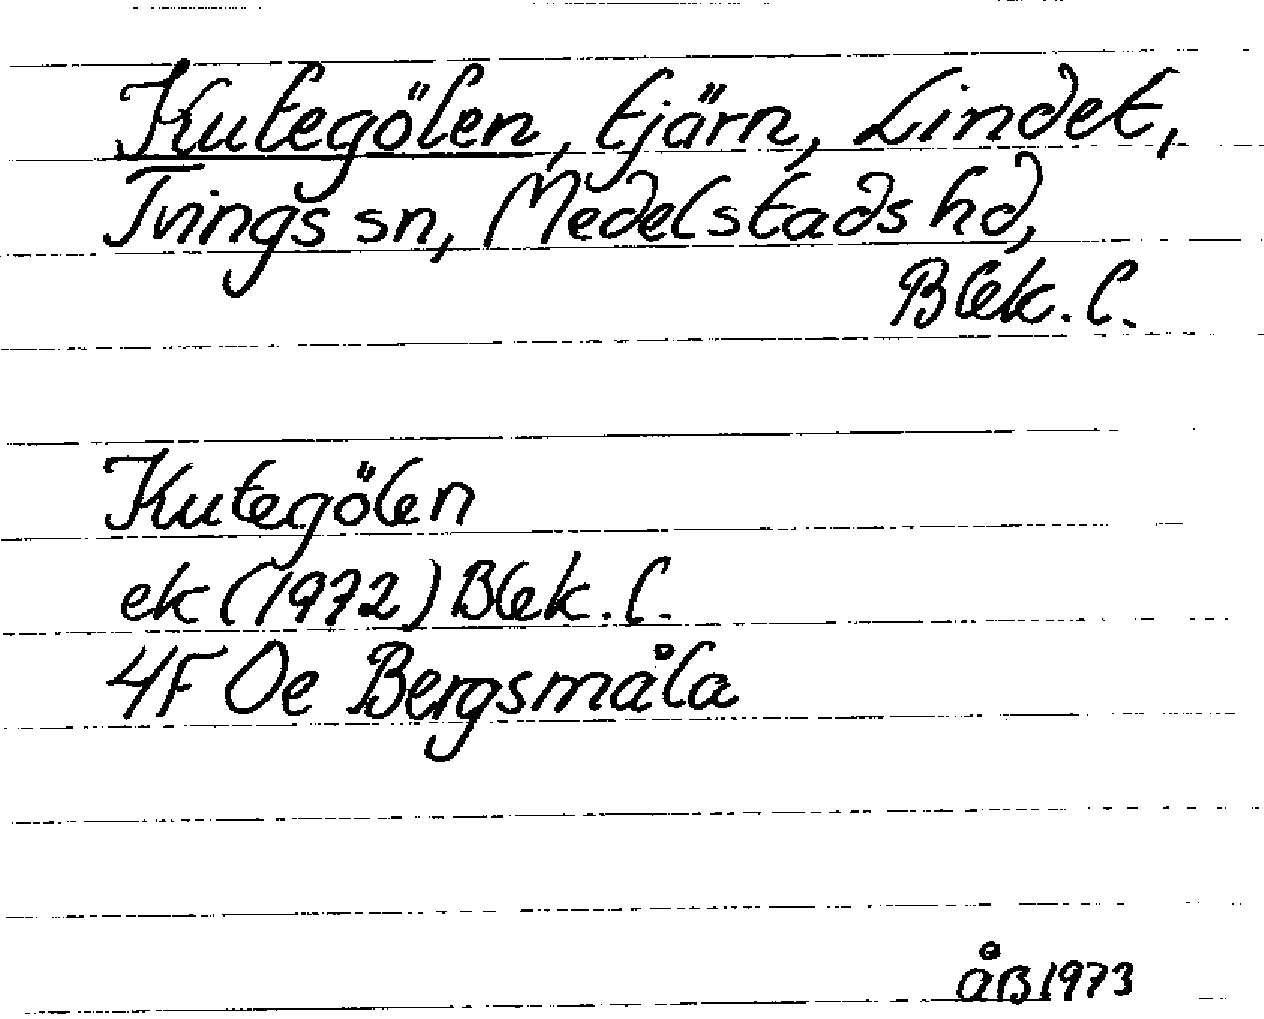 Kutegölen, tjärn, Lindet,
Tvings sn, Medelstads hd,
Blek. l.
Kutegölen
ek (1972) Blek. l.
4F Oe Bergsmåla
åB 1973